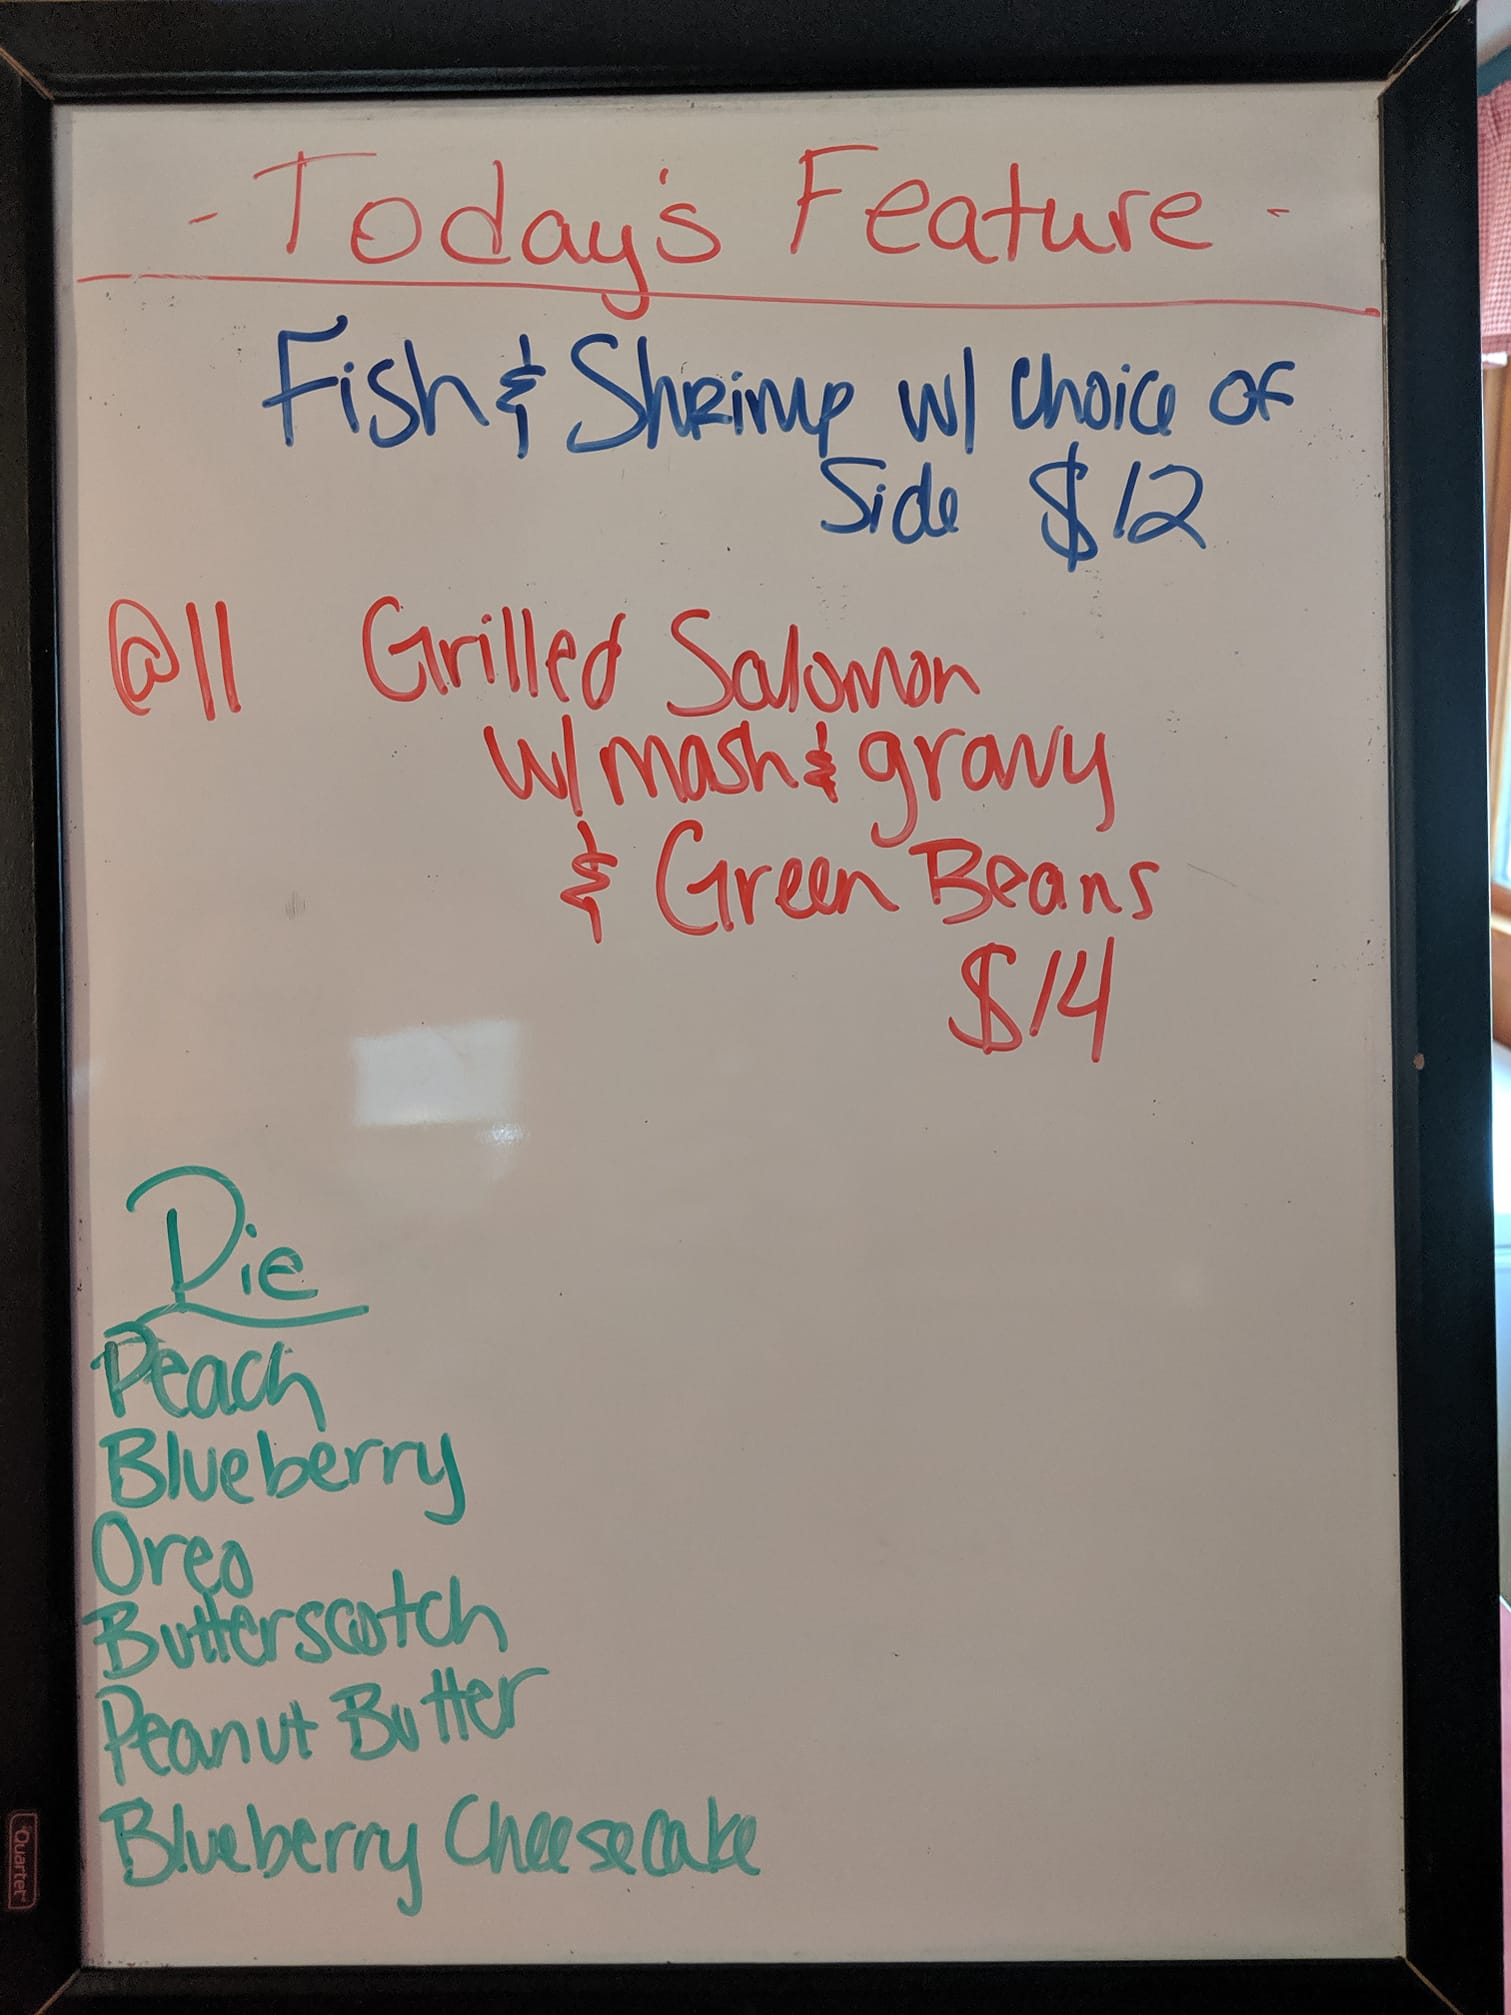 - Today's Feature -
Fish & Shrimp w/ Choice of
Side $12
@11 Grilled Salomon
w/ mash & gravy
& Green Beans
$14
Pie
Peach
Blueberry
Oreo
Butterscotch
Peanut Butter
Blueberry Cheesecake
Quartet